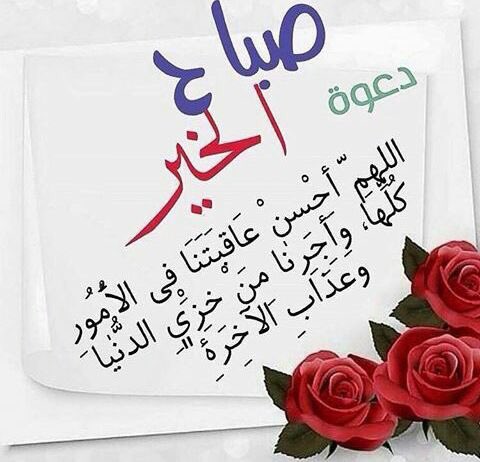 صباح
الخير
دعوة
اللهم أحْسن عَاقبتَنَا فى الأمُورِ
كُلِّهَا، وَأَجِرَنا مِنَ خْزِيْ الدنُّيَا
وعِذَابِ الآخِرَةِ